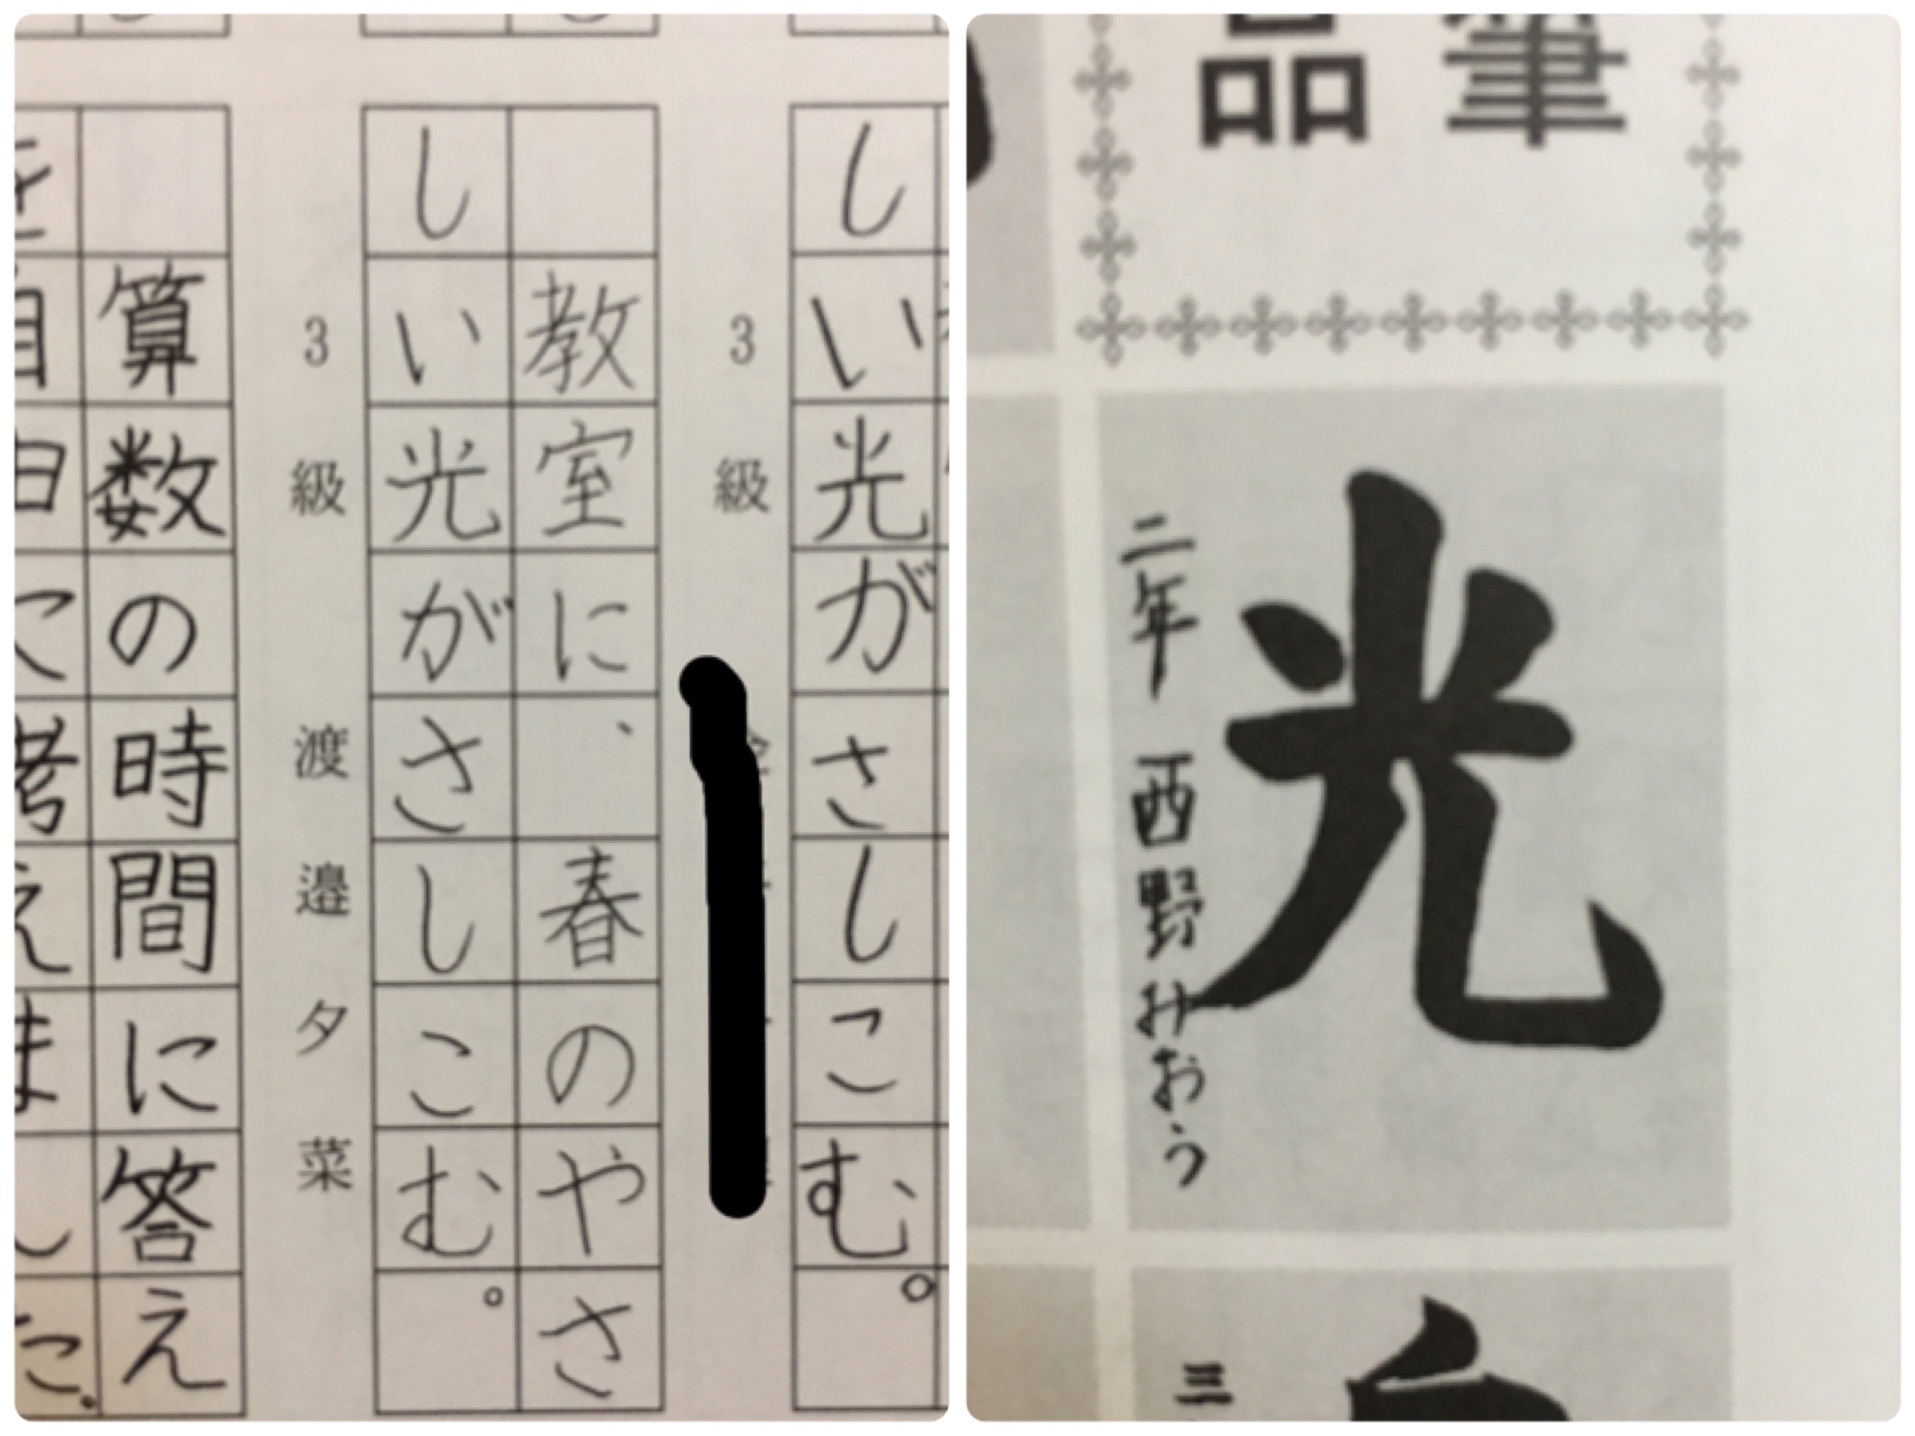 しい光がさしこむ。
3級
教室に、春のやさ
しい光がさしこむ。
3級 渡邉夕菜
算数の時間に答え
を自由に考えました。
筆
品
光
二年 西野みおう
三